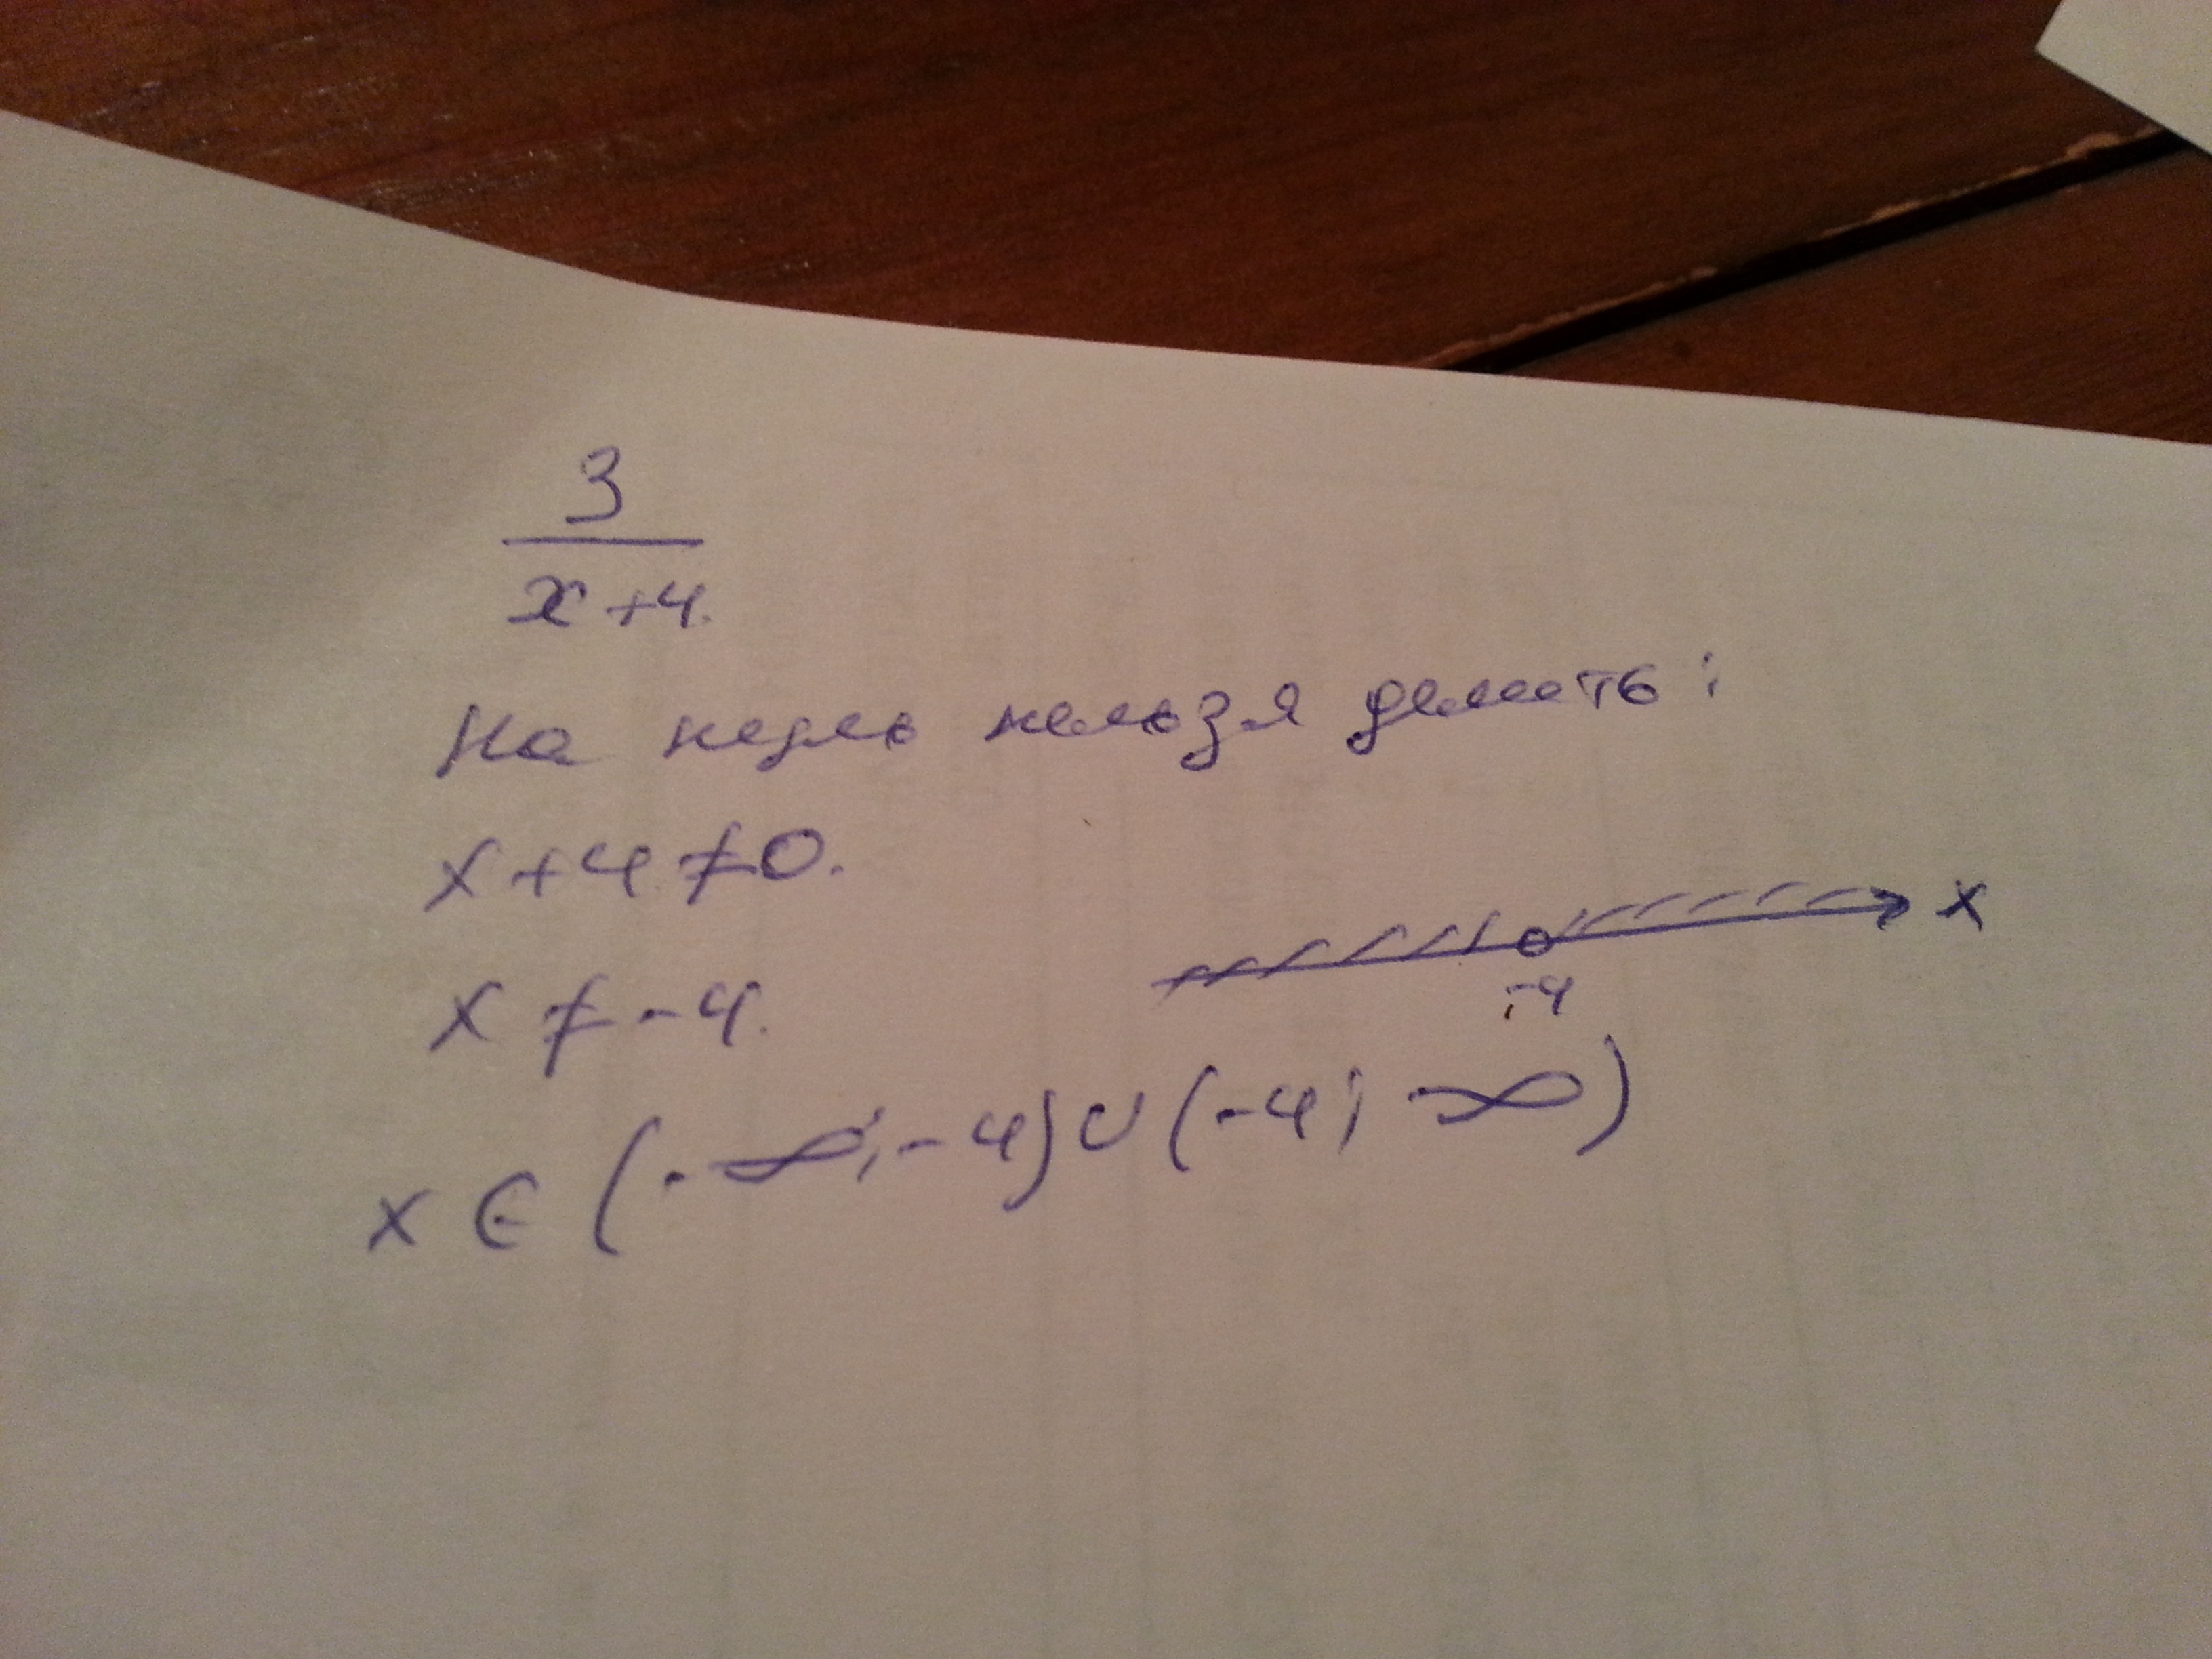 3
x+4.
На нуль нельзя делить:
x+4≠0.
x
x≠-4.
-4
x∈(-∞;-4)∪(-4;∞)